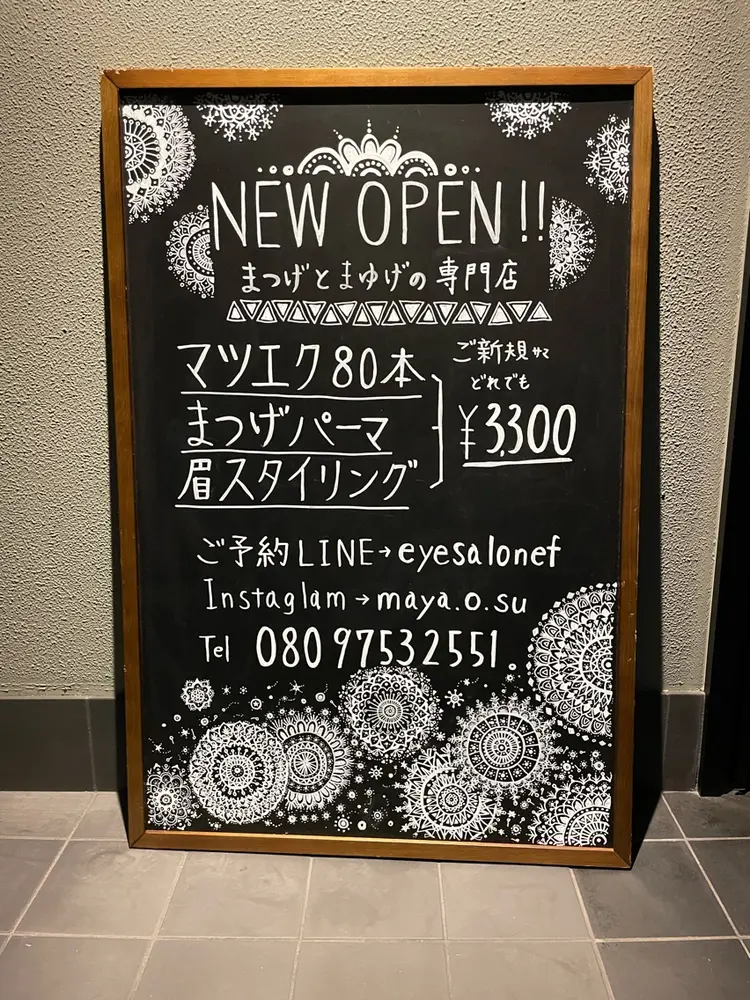 NEW OPEN!!
まつげとまゆげの専門店
マツエク80本
まつげパーマ
眉スタイリング
ご新規サマ
どれでも
¥3,300
ご予約LINE→eyesalonef
Instaglam→maya.o.su
Tel 08097532551.